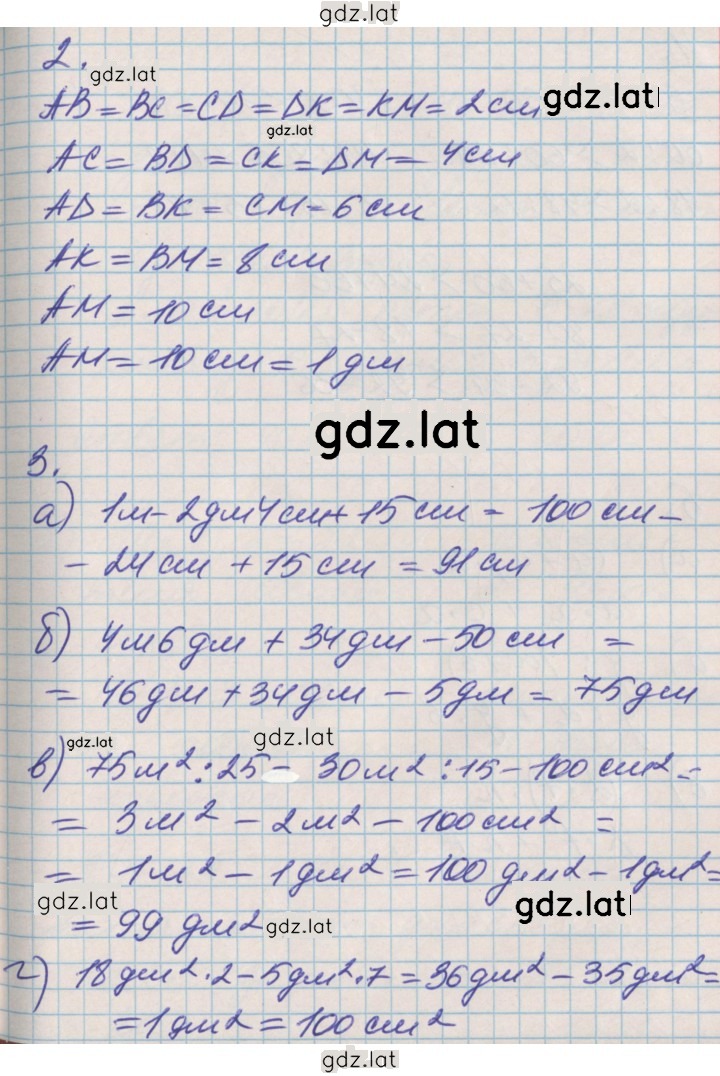 gdz.lat
2.
gdz.lat
AB = BC = CD = DK = KM = 2 см
gdz.lat
gdz.lat
AC = BD = CK = DM = 4 см
AD = BK = CM = 6 см
AK = BM = 8 см
AM = 10 см
AM = 10 см = 1 дм
gdz.lat
3.
а) 1м - 2дм4см + 15 см = 100 см -
- 24 см + 15 см = 91 см
б) 4м6дм + 34дм - 50 см =
= 46дм + 34дм - 5дм = 75дм
gdz.lat
gdz.lat
в) 75м² : 25 - 30м² : 15 - 100 см² =
= 3м² - 2м² - 100см² =
= 1м² - 1дм² = 100 дм² - 1дм² =
gdz.lat
gdz.lat
= 99 дм²
gdz.lat
г) 18дм² · 2 - 5дм² · 7 = 36дм² - 35дм² =
= 1дм² = 100 см²
gdz.lat